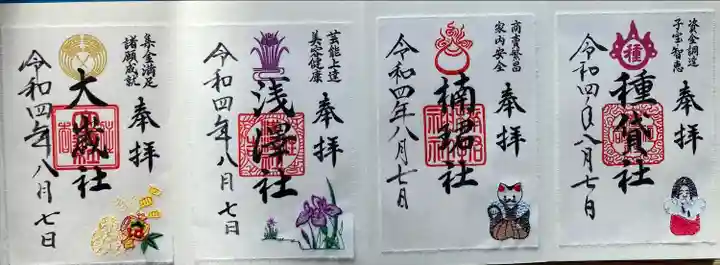 資金調達
子宝智恵
種
奉拝
種貸社
令和四年八月七日
商売繁昌
家内安全
奉拝
楠珺社
令和四年八月七日
芸能上達
美容健康
奉拝
浅澤社
令和四年八月七日
集金満足
諸願成就
奉拝
大歳社
令和四年八月七日